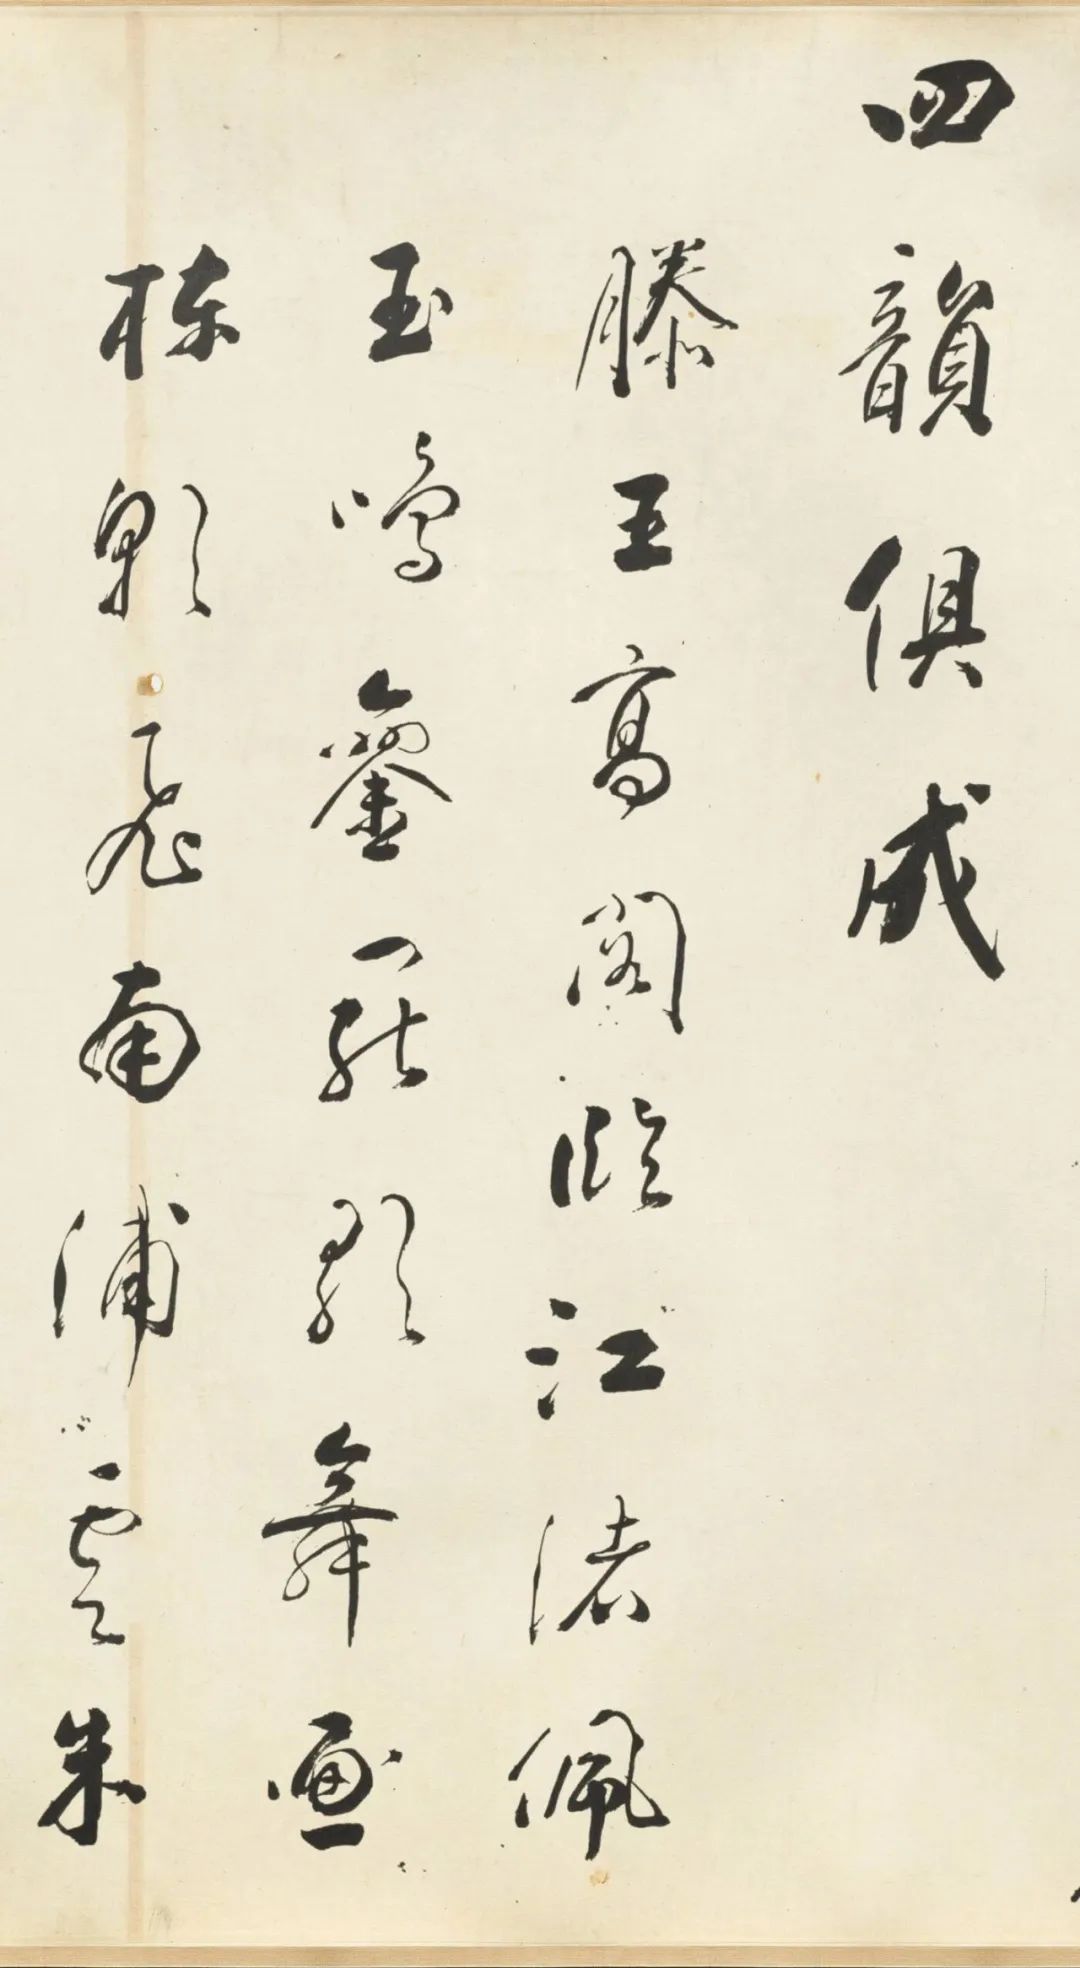 四韻俱成
滕王高閣臨江渚佩
玉鳴鑾罷歌舞畫
棟朝飛南浦雲朱